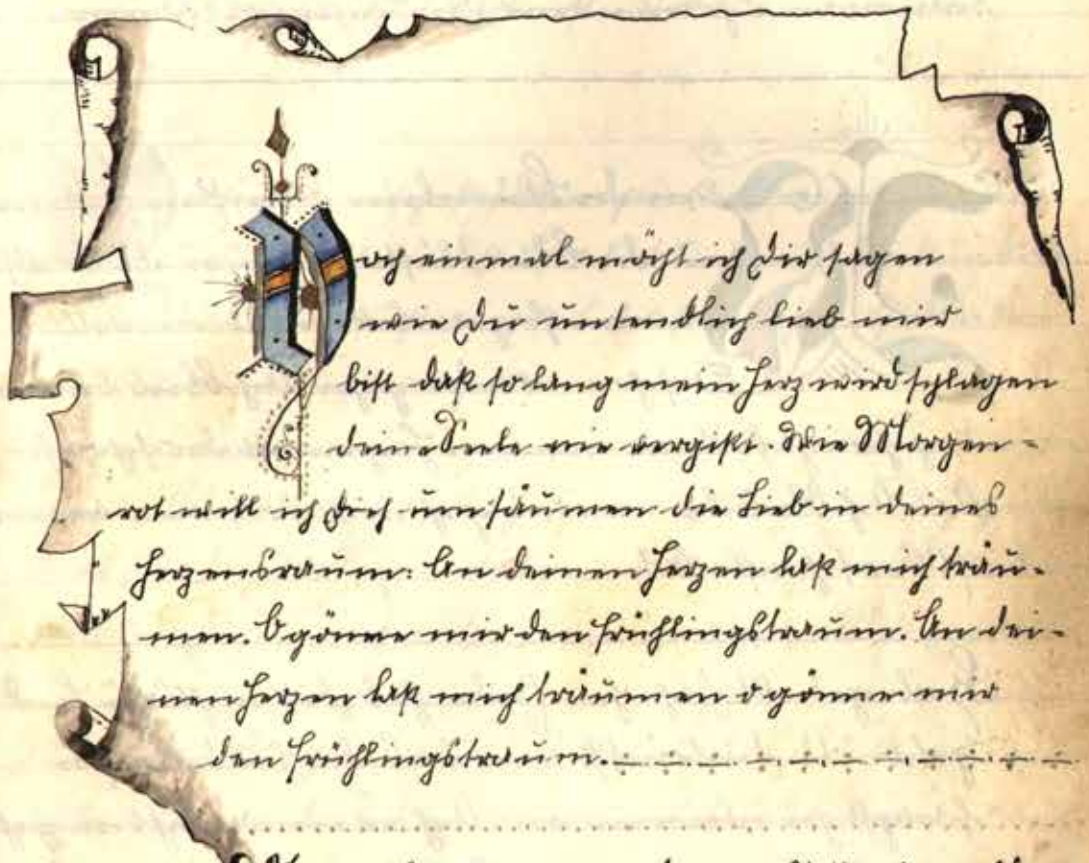 Noch einmal möcht ich Dir sagen
wie Du untendlich lieb mir
bist daß so lang mein Herz wird schlagen
deine Seele nie vergißt. Wie Morgen-
rot will ich Dich umsäumen die Lieb in deines
Herzensraum: An deinen Herzen laß mich träu-
men. O gönne mir den Frühlingstraum. An dei-
nen Herzen laß mich träumen o gönne mir
den Frühlingstraum.